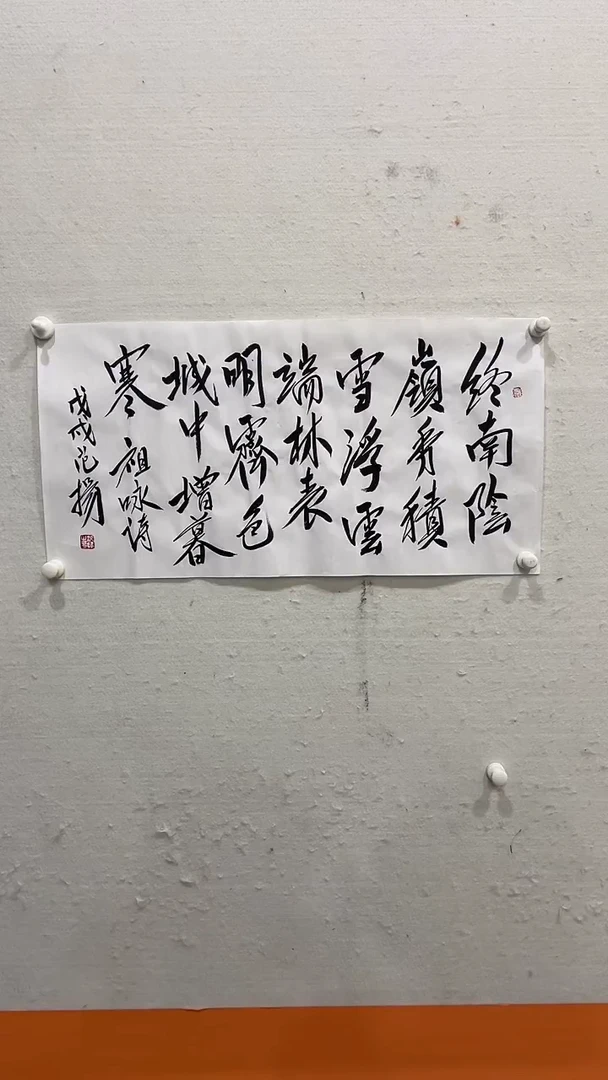 终南陰
嶺秀積
雪浮雲
端林表
明霽色
城中增暮
寒 祖咏诗
戊戌范揚